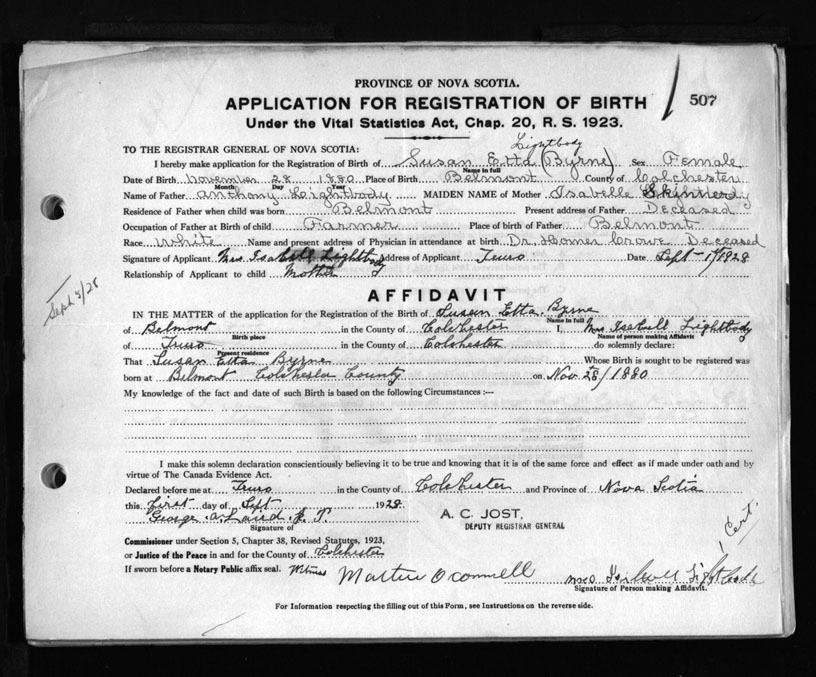 PROVINCE OF NOVA SCOTIA.
APPLICATION FOR REGISTRATION OF BIRTH
507
Under the Vital Statistics Act, Chap. 20, R. S. 1923.
Lightbody
TO THE REGISTRAR GENERAL OF NOVA SCOTIA:
I hereby make application for the Registration of Birth of Susan Etta (Byrne) Sex Female
Name in full
Date of Birth November 28 1880 Place of Birth Belmont County of Colchester
Month Day Year
Name of Father Anthony Lightbody MAIDEN NAME of Mother Isabelle
Residence of Father when child was born Belmont Present address of Father Deceased
Occupation of Father at Birth of child Farmer Place of birth of Father Belmont
Race White Name and present address of Physician in attendance at birth Dr. Homer Crowe Deceased
Signature of Applicant Mrs. Isabell Lightbody Address of Applicant Truro Date Sept 1st 1928
Relationship of Applicant to child Mother
Sept 5/28
AFFIDAVIT
IN THE MATTER of the application for the Registration of the Birth of Susan Etta Byrne
Name in full
of Belmont in the County of Colchester I, Mrs Isabell Lightbody
Birth place
Name of person making Affidavit
of Truro in the County of Colchester do solemnly declare:
Present residence
That Susan Etta Byrne Whose Birth is sought to be registered was
born at Belmont Colchester County on Nov. 28/1880
My knowledge of the fact and date of such Birth is based on the following Circumstances :—
I make this solemn declaration conscientiously believing it to be true and knowing that it is of the same force and effect as if made under oath and by
virtue of The Canada Evidence Act.
Declared before me at Truro in the County of Colchester and Province of Nova Scotia
this First day of Sept 1928.
George A. J. P.
A. C. JOST,
DEPUTY REGISTRAR GENERAL
Signature of
1 Cert.
Commissioner under Section 5, Chapter 38, Revised Statutes, 1923,
or Justice of the Peace in and for the County of Colchester
If sworn before a Notary Public affix seal. Witness Martin O'Connell Mrs Isibell Lightbody
Signature of Person making Affidavit.
For Information respecting the filling out of this Form, see Instructions on the reverse side.